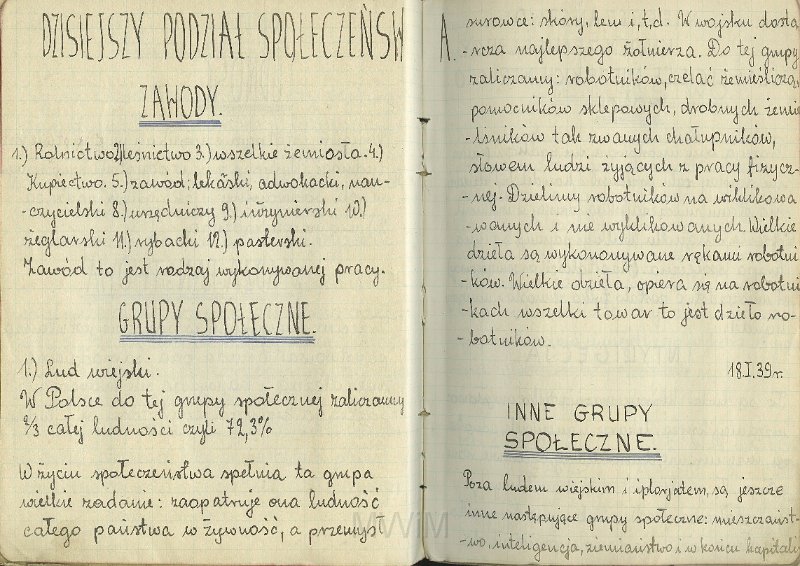 DZISIEJSZY PODZIAŁ SPOŁECZEŃSW
ZAWODY.
1.) Rolnictwo 2) leśnictwo 3.) wszelkie żemiosła. 4.)
Kupiectwo. 5.) zawód: lekaŕski, adwokacki, nau-
-czycielski 8.) urzędniczy 9.) inżynierski 10.)
żeglarski 11.) rybacki 12.) pasterski.
Zawód to jest rodzaj wykonywanej pracy.
GRUPY SPOŁECZNE.
1.) Lud wiejski.
W Polsce do tej grupy społecznej zaliczamy
2/3 całej ludności czyli 72,3%
W życiu społeczeństwa spełnia ta grupa
wielkie zadanie: zaopatruje ona ludność
całego państwa w żywność, a przemysł
A.
surowce: skóry, len i, t, d. W wojsku dosta
-rcza najlepszego żołnierza. Do tej grupy
zaliczamy: robotników, czelać żemieślicza,
pomocników sklepowych, drobnych żemie
-śników tak zwanych chałupników,
słowem ludzi żyjących z pracy fizycz-
-nej. Dzielimy robotników na wiklikowa
-wanych i nie wyklikowanych. Wielkie
dzieła są wykonowywane rękami robotni
-ków. Wielkie dzieła, opiera się na robotni
-kach wszelki towar to jest dzieło ro-
-botników.
18.I.39r.
INNE GRUPY
SPOŁECZNE.
Poza ludem wiejskim i są jeszcze
inne następujące grupy społeczne: mieszczańst-
-wo, inteligencja, ziemiaństwo i w końcu kapitali
MWiM